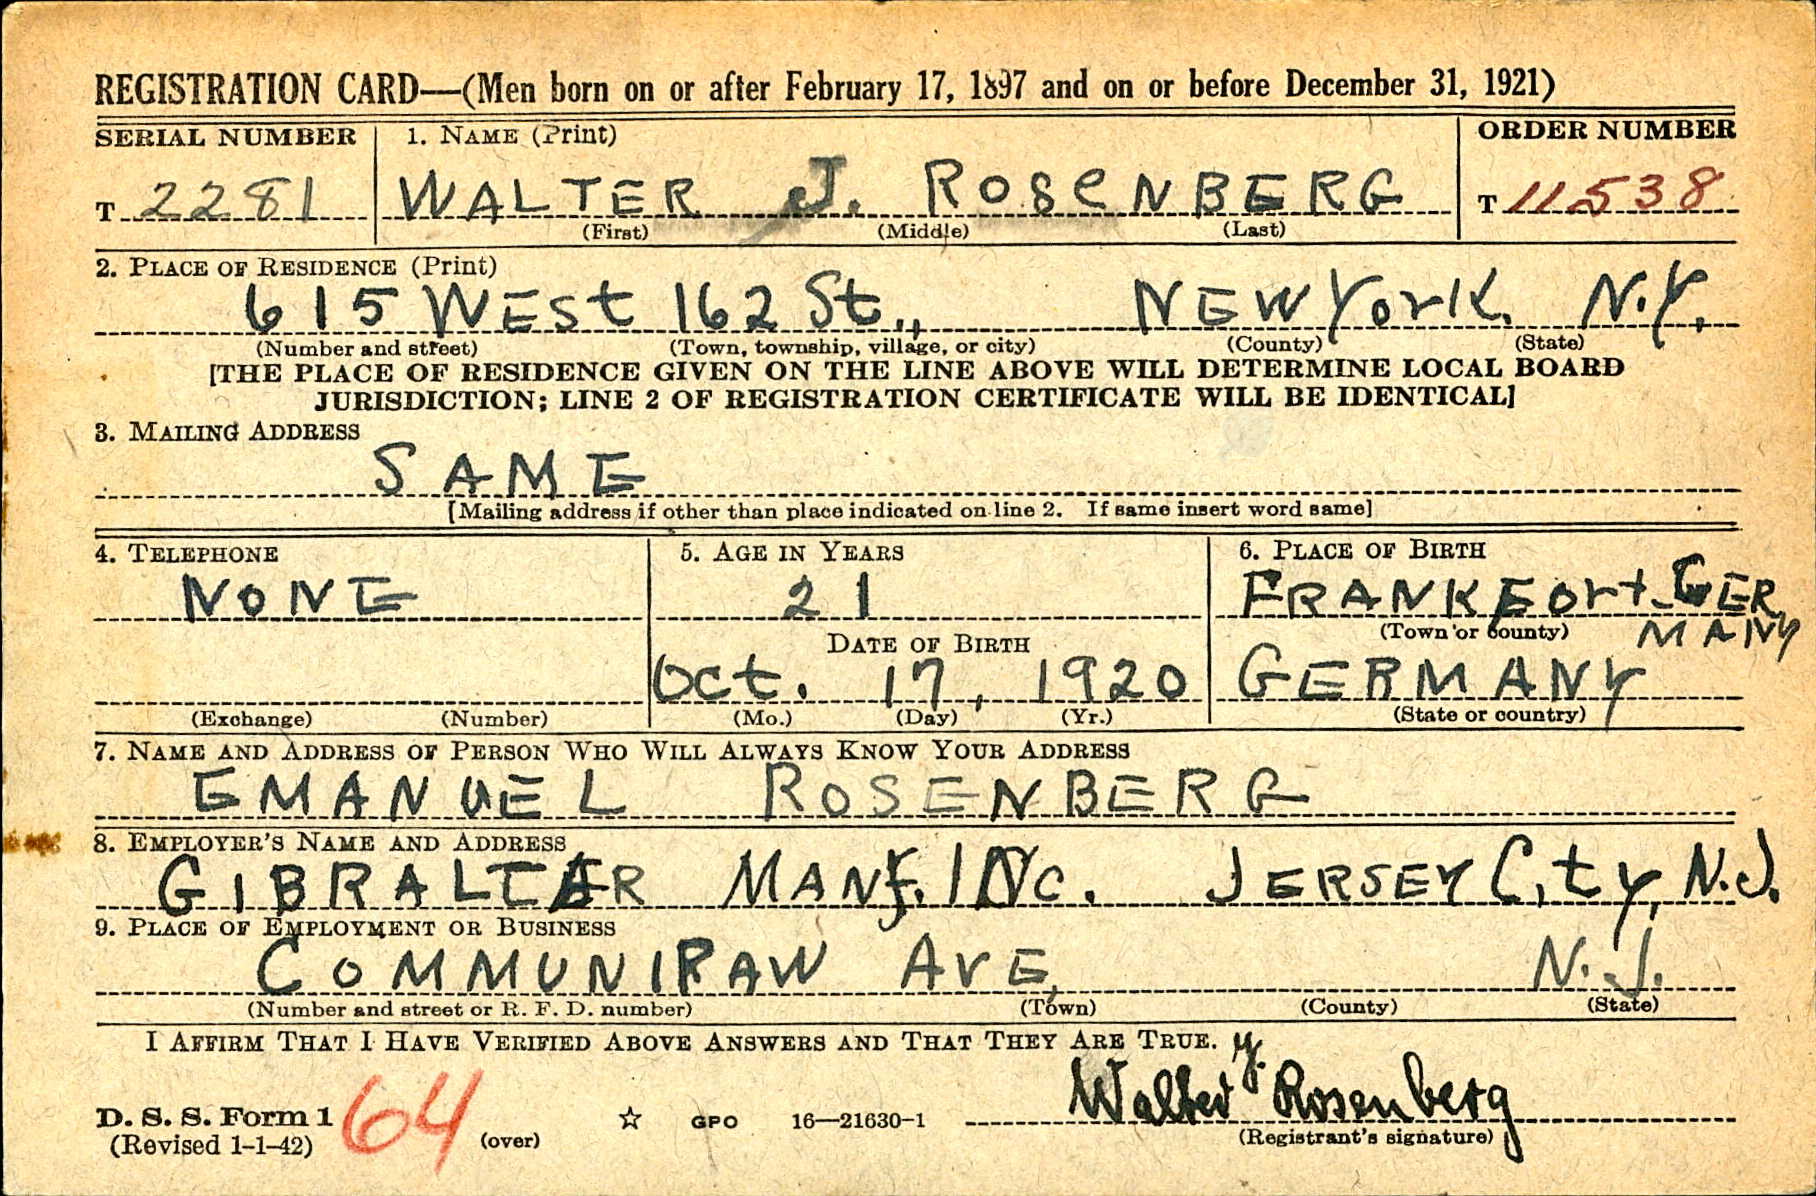 REGISTRATION CARD—(Men born on or after February 17, 1897 and on or before December 31, 1921)
SERIAL NUMBER 1. NAME (Print) ORDER NUMBER
T 2281 WALTER J. ROSENBERG T 11538
(First) (Middle) (Last)
2. PLACE OF RESIDENCE (Print)
615 WEST 162 St., NEW York. N.Y.
(Number and street) (Town, township, village, or city) (County) (State)
[THE PLACE OF RESIDENCE GIVEN ON THE LINE ABOVE WILL DETERMINE LOCAL BOARD
JURISDICTION; LINE 2 OF REGISTRATION CERTIFICATE WILL BE IDENTICAL]
3. MAILING ADDRESS
SAME
[Mailing address if other than place indicated on line 2. If same insert word same]
4. TELEPHONE 5. AGE IN YEARS 6. PLACE OF BIRTH
NONE 21 FRANKFort-GER
(Town or county) MANY
DATE OF BIRTH
Oct. 17, 1920 GERMANY
(Exchange) (Number) (Mo.) (Day) (Yr.) (State or country)
7. NAME AND ADDRESS OF PERSON WHO WILL ALWAYS KNOW YOUR ADDRESS
EMANUEL ROSENBERG
8. EMPLOYER'S NAME AND ADDRESS
GIBRALTAR MANf. INC. JERSEY City, N.J.
9. PLACE OF EMPLOYMENT OR BUSINESS
COMMUNIPAW AVE, N.J.
(Number and street or R. F. D. number) (Town) (County) (State)
I AFFIRM THAT I HAVE VERIFIED ABOVE ANSWERS AND THAT THEY ARE TRUE.
Walter J. Rosenberg
D. S. S. Form 1 64 ☆ GPO 16—21630-1
(Revised 1-1-42) (over) (Registrant's signature)